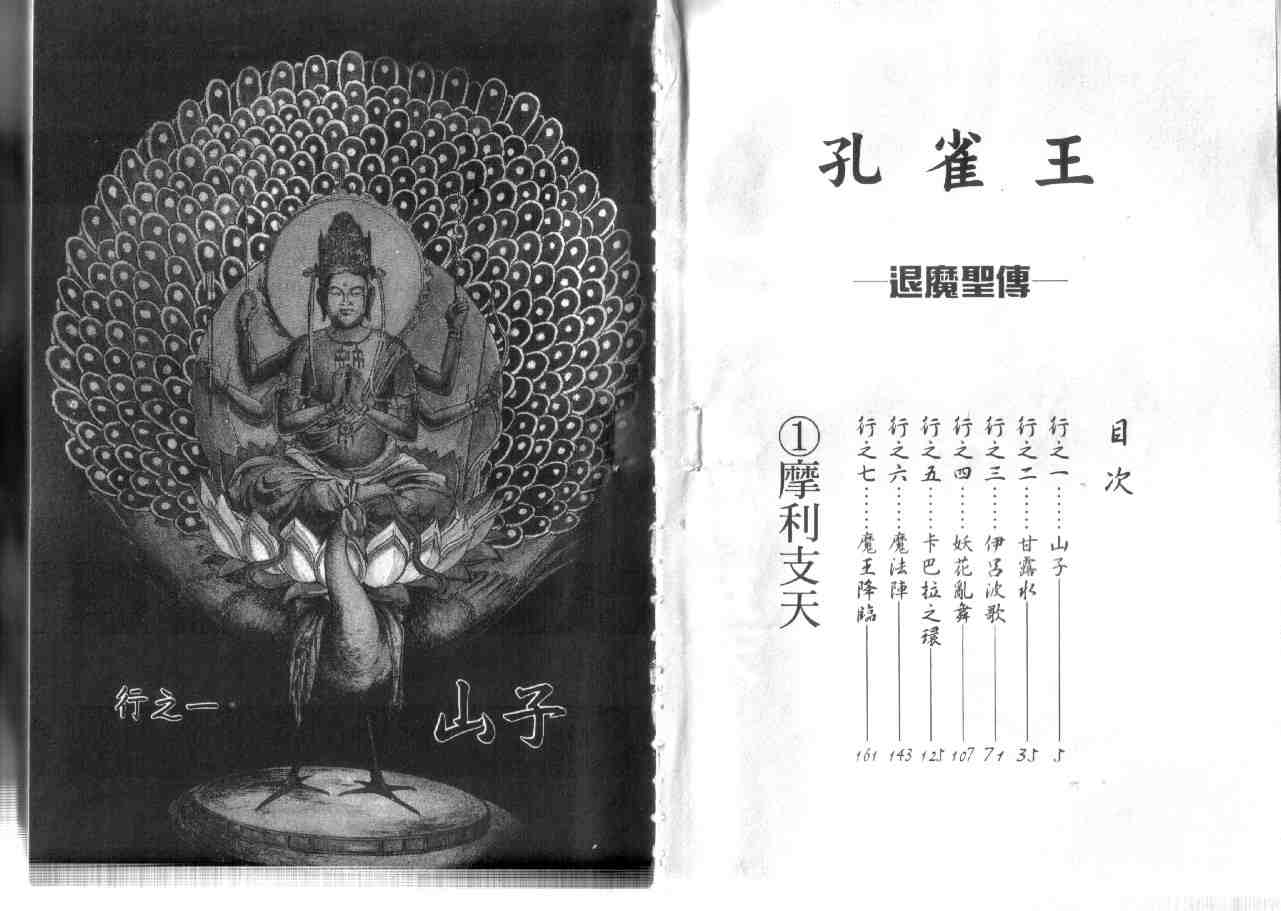 孔雀王
退魔聖傳
目次
行之一……山子 5
行之二……甘露水 35
行之三……伊呂波歌 71
行之四……妖花亂舞 107
行之五……卡巴拉之環 125
行之六……魔法陣 143
行之七……魔王降臨 161
①摩利支天
行之一
山子